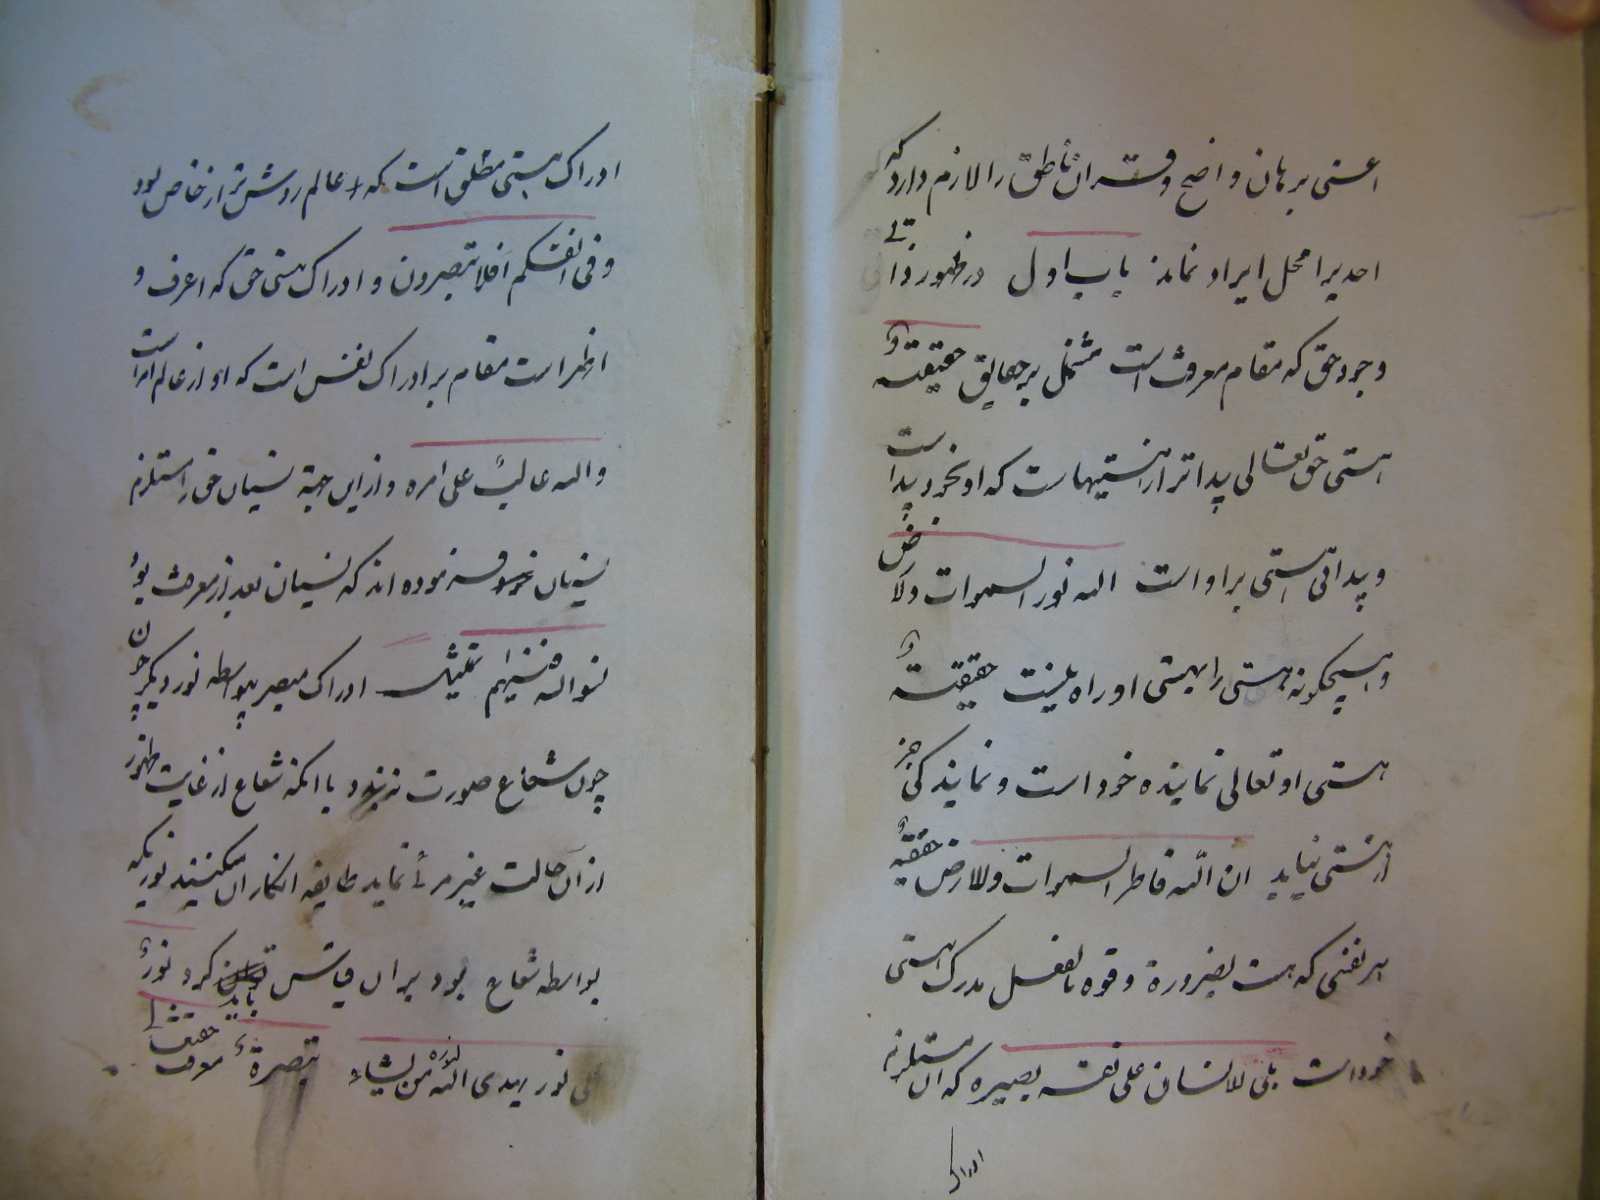 اعنی برهان واضح و قرآن ناطق را لازم دارد که
احدیرا محل ایراد نماند باب اول در ظهور ذات
وجود حق که مقام معرفت است مشتمل بر حقایق حقیقة
هستی حق تعالی پیداتر از هستیهاست که او بخود پیداست
و پیدائی هستی براو است الله نور السموات والارض
و هیچگونه هستی را بهستی او راه نیست حقیقة
هستی او تعالی نماینده خود است و نمایندگی جز
از هستی نیاید ان الله فاطر السموات والارض حقیقة
هر نفسی که هست بضرورة و قوه یا بفعل مدرک هستی
خود است بلی للانسان علی نفسه بصیره که آن مستلزم
ادراک
ادراک هستی مطلق است که عالم روشن تر از خاص بود
و فی انفسکم افلا تبصرون و ادراک هستی حق که اعرف و
اظهر است مقدم بر ادراک نفس است که او از عالم امر است
والله غالب علی امره و از این جهة نسیان حق را مستلزم
نسیان خود فرموده اند که نسیان بعد از معرفت بود
نسوا الله فنسیهم تمثیل ادراک مبصر بواسطه نور دیگر چون
چون شعاع صورت نه بندد با آنکه شعاع از غایت ظهور
از آن حالت غیر مرئی نماید طایفه انکار آن میکنند نوریکه
بواسطه شعاع بود بر آن قیاس باید کرد نور
علی نور یهدی الله لنوره من یشاء تبصرة معرفت حقیقة